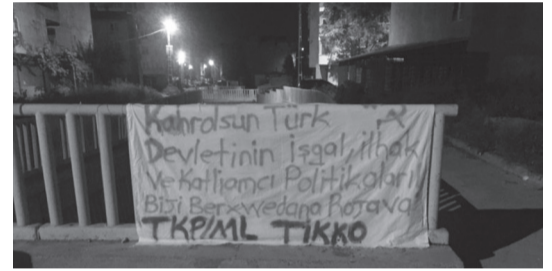 Kahrolsun Türk
Devletinin işgal, ilhak
Ve Katliamcı Politikaları
Biji Berxwedana Rojava
TKP/ML TİKKO